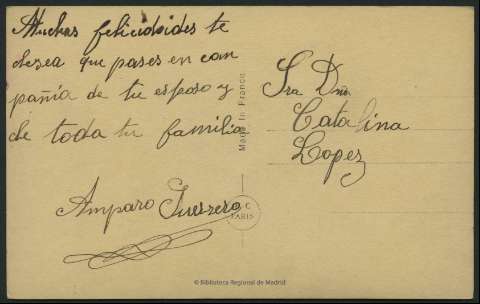 Muchas felicidoides te
desea que pases en com
pañia de tu esposo y
de toda tu familia
Amparo Guerrero
Sra Dña
Catalina
Lopez
Made in France
C
PARIS
© Biblioteca Regional de Madrid